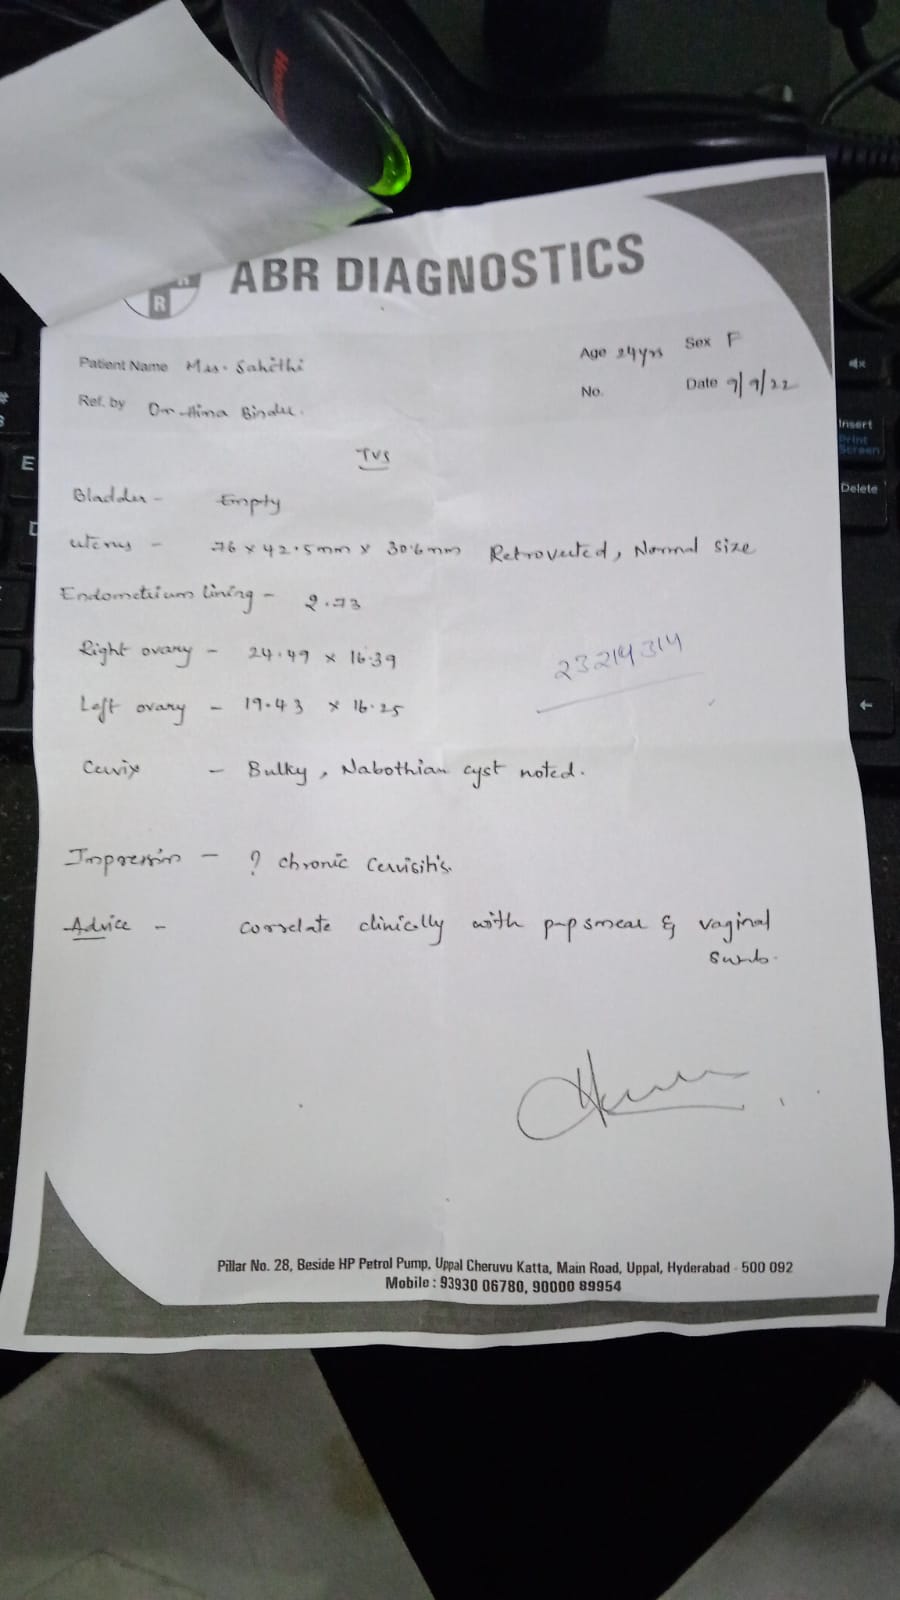 R
ABR DIAGNOSTICS
Patient Name Mrs. Sahithi
Age 24yrs Sex F
Ref. by Dr Hima Bindu.
No. Date 9/9/22
TVS
Bladder - Empty
uterus - 76 x 42.5mm x 30.6mm Retroverted, Normal size
Endometrium lining - 2.73
Right ovary - 24.49 x 16.39
23214314
Left ovary - 19.43 x 16.25
Cervix - Bulky, Nabothian cyst noted.
Impression - ? chronic Cervisitis.
Advice - correlate clinically with pap smear & vaginal
swab.
Pillar No. 28, Beside HP Petrol Pump, Uppal Cheruvu Katta, Main Road, Uppal, Hyderabad - 500 092
Mobile : 93930 06780, 90000 89954
Insert
Print
Screen
Delete
E